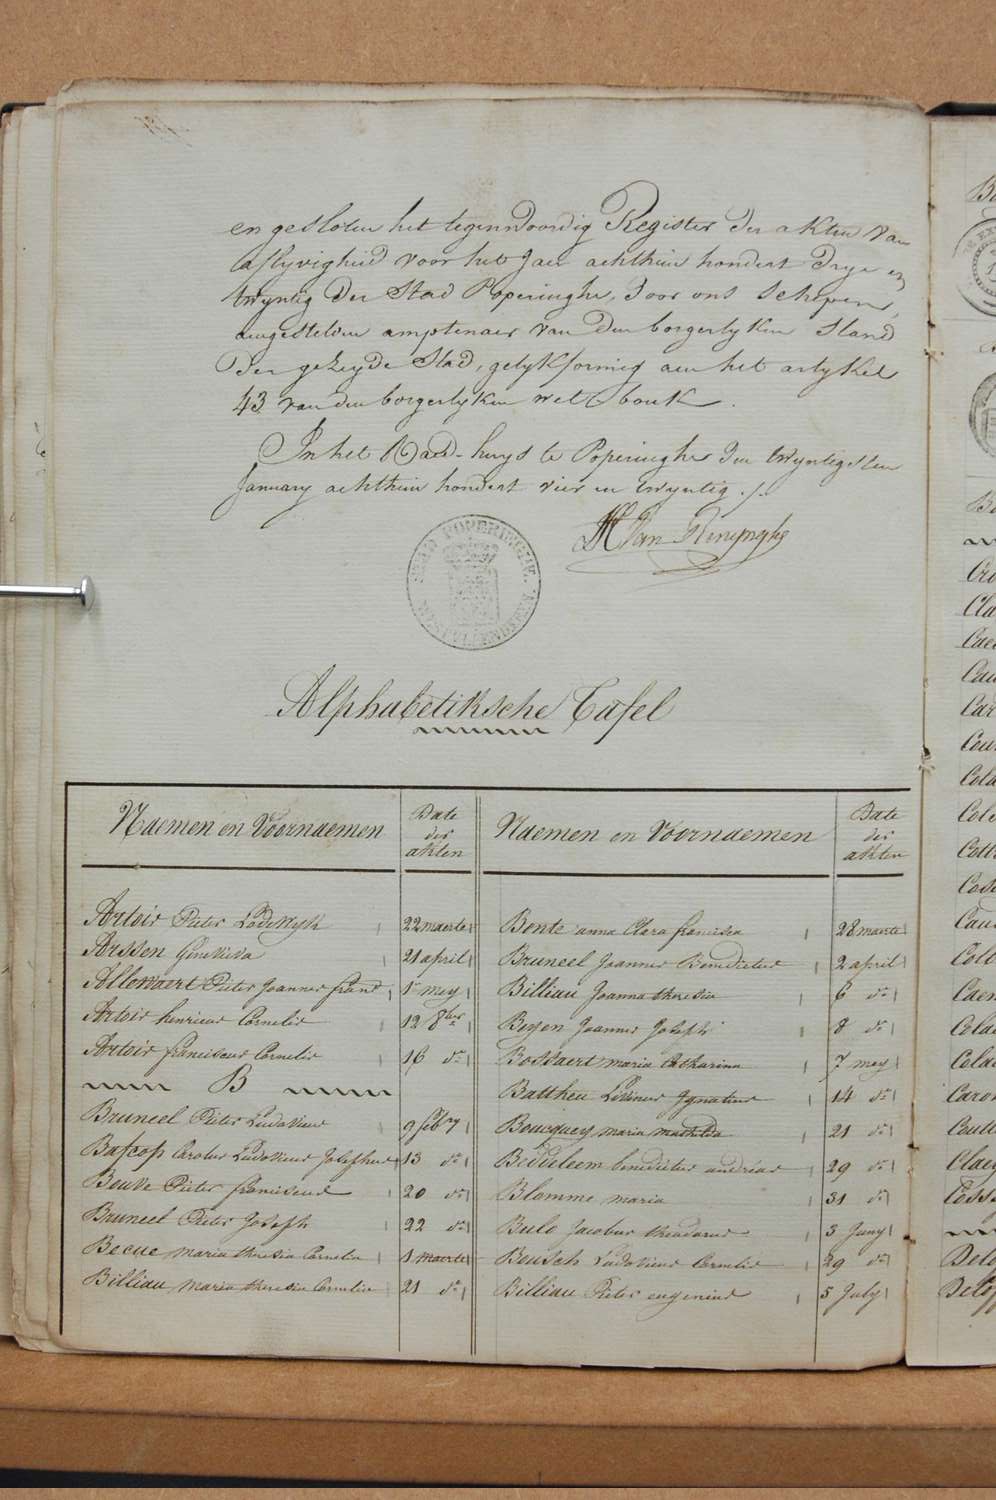 en gesloten het tegenwoordig Register der akten van
aflyvigheid voor het Jaer achthien hondert drye en
twyntig der Stad Poperinghe, door ons Schepen,
aengestelden amptenaer van den borgerlyken Stand
der gezeyde Stad, gelykformig aen het artykel
43 van den borgerlyken wet-bouk.
In het Raed-huys te Poperinghe den twyntigsten
January achthien hondert vier en twyntig ./.
STAD POPERINGHE.
Alphabetiksche Tafel
Naemen en Voornaemen
Date der akten
Naemen en Voornaemen
Date der akten
Artois Pieter Lodewyk 22 maerte
Arssen Genoveva 21 april
Allewaert Pieter Joannes frans 1e mey
Artois henricus Cornelis 12 8ber
Artois franciscus Cornelis 16 do
B
Bruneel Pieter Ludovicus 9 febry
Bascop Carolus Ludovicus Josephus 13 do
Beuve Pieter franciscus 20 do
Bruneel Pieter Joseph 22 do
Becue maria theresia Cornelia 1 maerte
Billiau maria theresia Cornelia 21 do
Bente anna Clara francisca 28 maerte
Bruneel Joannes Benedictus 2 april
Billiau Joanna theresia 6 do
Beyen Joannes Joseph 8 do
Bossaert maria Catharina 7 mey
Battheu Livinus Ignatius 14 do
Boucquey maria mathilda 21 do
Bedeleem benedictus andréas 29 do
Blomme maria 31 do
Bulo Jacobus theodorus 3 Juny
Beusch Ludovicus Cornelis 29 do
Billiau Pieter eugenius 5 July